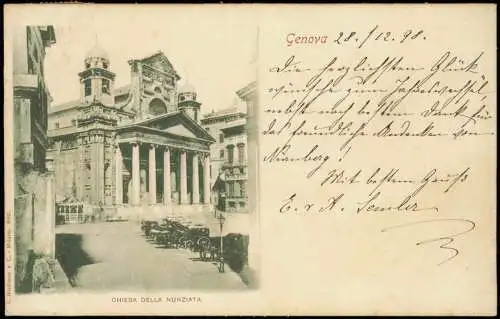 Genova 28./12.98.
Die herzlichsten Glück
wünsche zum Jahreswechsel
nebst noch besten Dank für
das freundliche Andenken von
Nürnberg!
Mit bestem Gruß
E. & A. Semler
CHIESA DELLA NUNZIATA